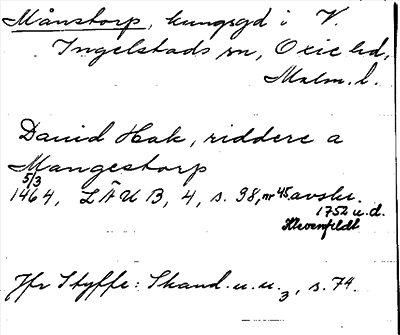 Månstorp, kungsgd i V.
Ingelstads sn, Oxie hd,
Malm. l.
David Hak, riddere a
Mangestorp
5/3
1464, LÄUB, 4, s. 98, nr 45 avskr.
1752 u.d.
Klevenfeldt
Jfr Styffe: Skand. u. u. 3, s. 74.